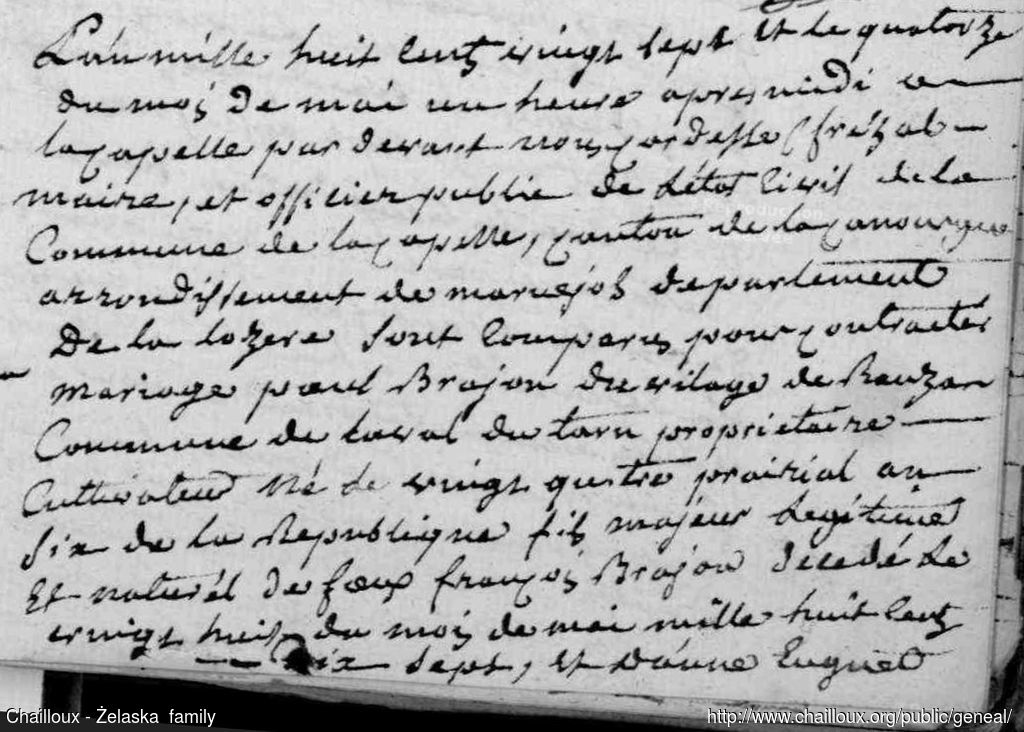 L'an mille huit cents vingt sept et le quatorze
du mois de mai un heure apres midi a
lacapelle par devant nous cordesse frézal
maire, et officier public de létat civil de la
Commune de lacapelle, canton de lacanourgue
arrondissement de maruejols departement
De la lozere sont comparus pour contracter
mariage paul Brajon du vilage de Rauzas
Commune de laval du tarn propriétaire
Cultivateur né de vingt quatre prairial an
six de la Republique fils majeur legitime
Et naturel de feux françois Brajon decedé le
vingt huit du mois de mai mille huit cents
dix sept, et d'anne
Chailloux - Żelaska family
http://www.chailloux.org/public/geneal/